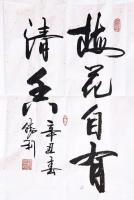 梅花自有
清香
辛丑春